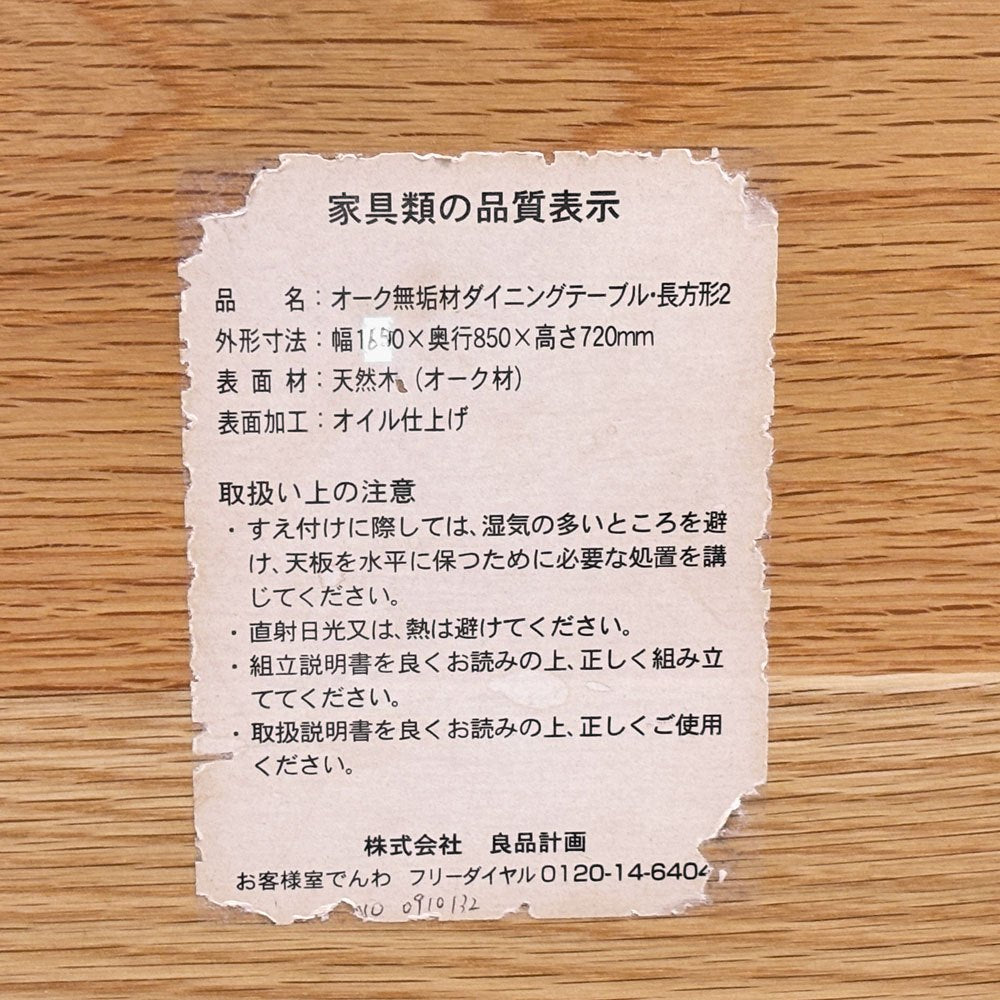 家具類の品質表示
品　　名：オーク無垢材ダイニングテーブル・長方形2
外形寸法：幅1650×奥行850×高さ720mm
表 面 材：天然木、(オーク材)
表面加工：オイル仕上げ
取扱い上の注意
・すえ付けに際しては、湿気の多いところを避
け、天板を水平に保つために必要な処置を講
じてください。
・直射日光又は、熱は避けてください。
・組立説明書を良くお読みの上、正しく組み立
ててください。
・取扱説明書を良くお読みの上、正しくご使用
ください。
株式会社　良品計画
お客様室でんわ　フリーダイヤル 0120-14-6404
NO 0910132